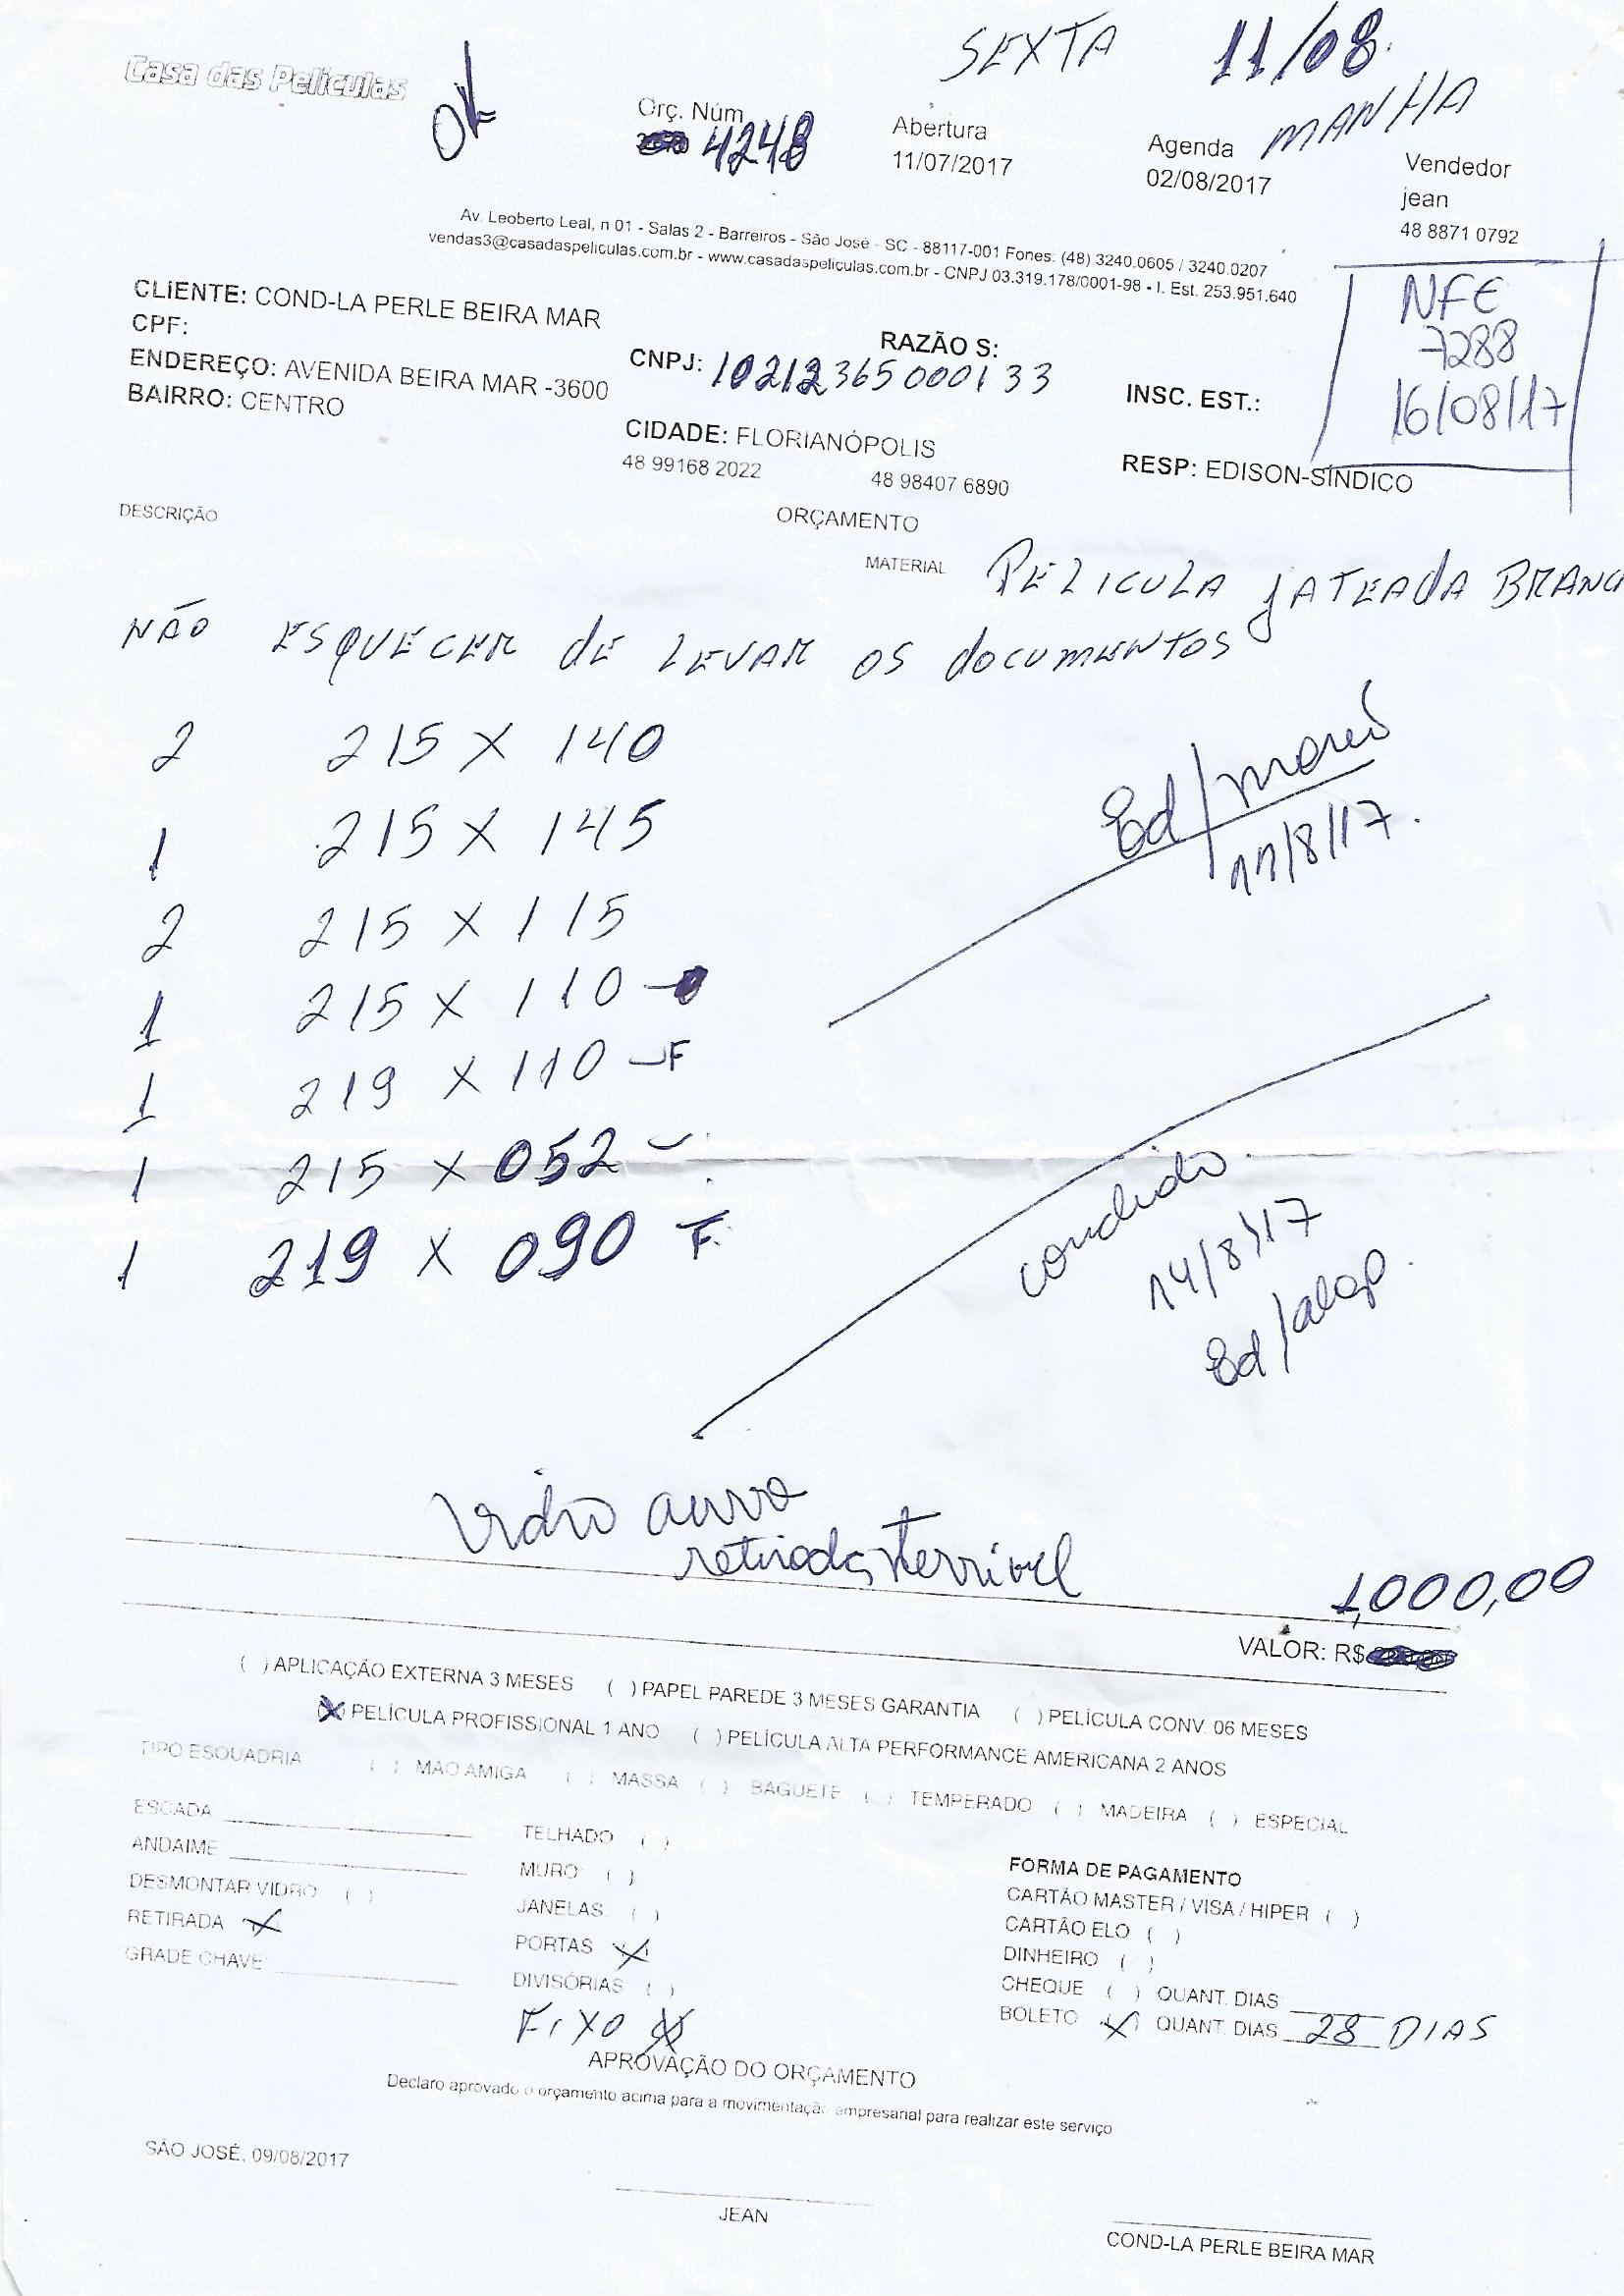 SEXTA 11/08
MANHA
Casa das Películas
OK
Orç. Núm
4248
Abertura
11/07/2017
Agenda
02/08/2017
Vendedor
jean
48 8871 0792
Av. Leoberto Leal, n 01 - Salas 2 - Barreiros - São José - SC - 88117-001 Fones: (48) 3240.0605 / 3240.0207
vendas3@casadaspeliculas.com.br - www.casadaspeliculas.com.br - CNPJ 03.319.178/0001-98 - I. Est. 253.951.640
NFE
7288
16/08/17
CLIENTE: COND-LA PERLE BEIRA MAR
CPF:
RAZÃO S:
ENDEREÇO: AVENIDA BEIRA MAR -3600
CNPJ: 10212365000133
INSC. EST.:
BAIRRO: CENTRO
CIDADE: FLORIANÓPOLIS
48 99168 2022 48 98407 6890
RESP: EDISON-SÍNDICO
DESCRIÇÃO
ORÇAMENTO
MATERIAL PELICULA JATEADA BRANC
NÃO ESQUECER DE LEVAR OS DOCUMENTOS
2 215 X 140
1 215 X 145
2 215 X 115
1 215 X 110 -
1 219 X 110 - F
1 215 X 052 -
1 219 X 090 F.
Ed/
11/8/17.
14/8/17
Ed/
Vidro
retirada terrivel
1,000,00
VALOR: R$
( ) APLICAÇÃO EXTERNA 3 MESES ( ) PAPEL PAREDE 3 MESES GARANTIA ( ) PELÍCULA CONV. 06 MESES
(X) PELÍCULA PROFISSIONAL 1 ANO ( ) PELÍCULA ALTA PERFORMANCE AMERICANA 2 ANOS
TIPO ESQUADRIA ( ) MÃO AMIGA ( ) MASSA ( ) BAGUETE ( ) TEMPERADO ( ) MADEIRA ( ) ESPECIAL
ESCADA
ANDAIME
DESMONTAR VIDRO ( )
RETIRADA X
GRADE CHAVE:
TELHADO ( )
MURO ( )
JANELAS ( )
PORTAS X
DIVISÓRIAS ( )
FIXO (X)
FORMA DE PAGAMENTO
CARTÃO MASTER / VISA / HIPER ( )
CARTÃO ELO ( )
DINHEIRO ( )
CHEQUE ( ) QUANT. DIAS
BOLETO (X) QUANT. DIAS 28 DIAS
APROVAÇÃO DO ORÇAMENTO
Declaro aprovado o orçamento acima para a movimentação empresarial para realizar este serviço
SÃO JOSÉ, 09/08/2017
JEAN
COND-LA PERLE BEIRA MAR